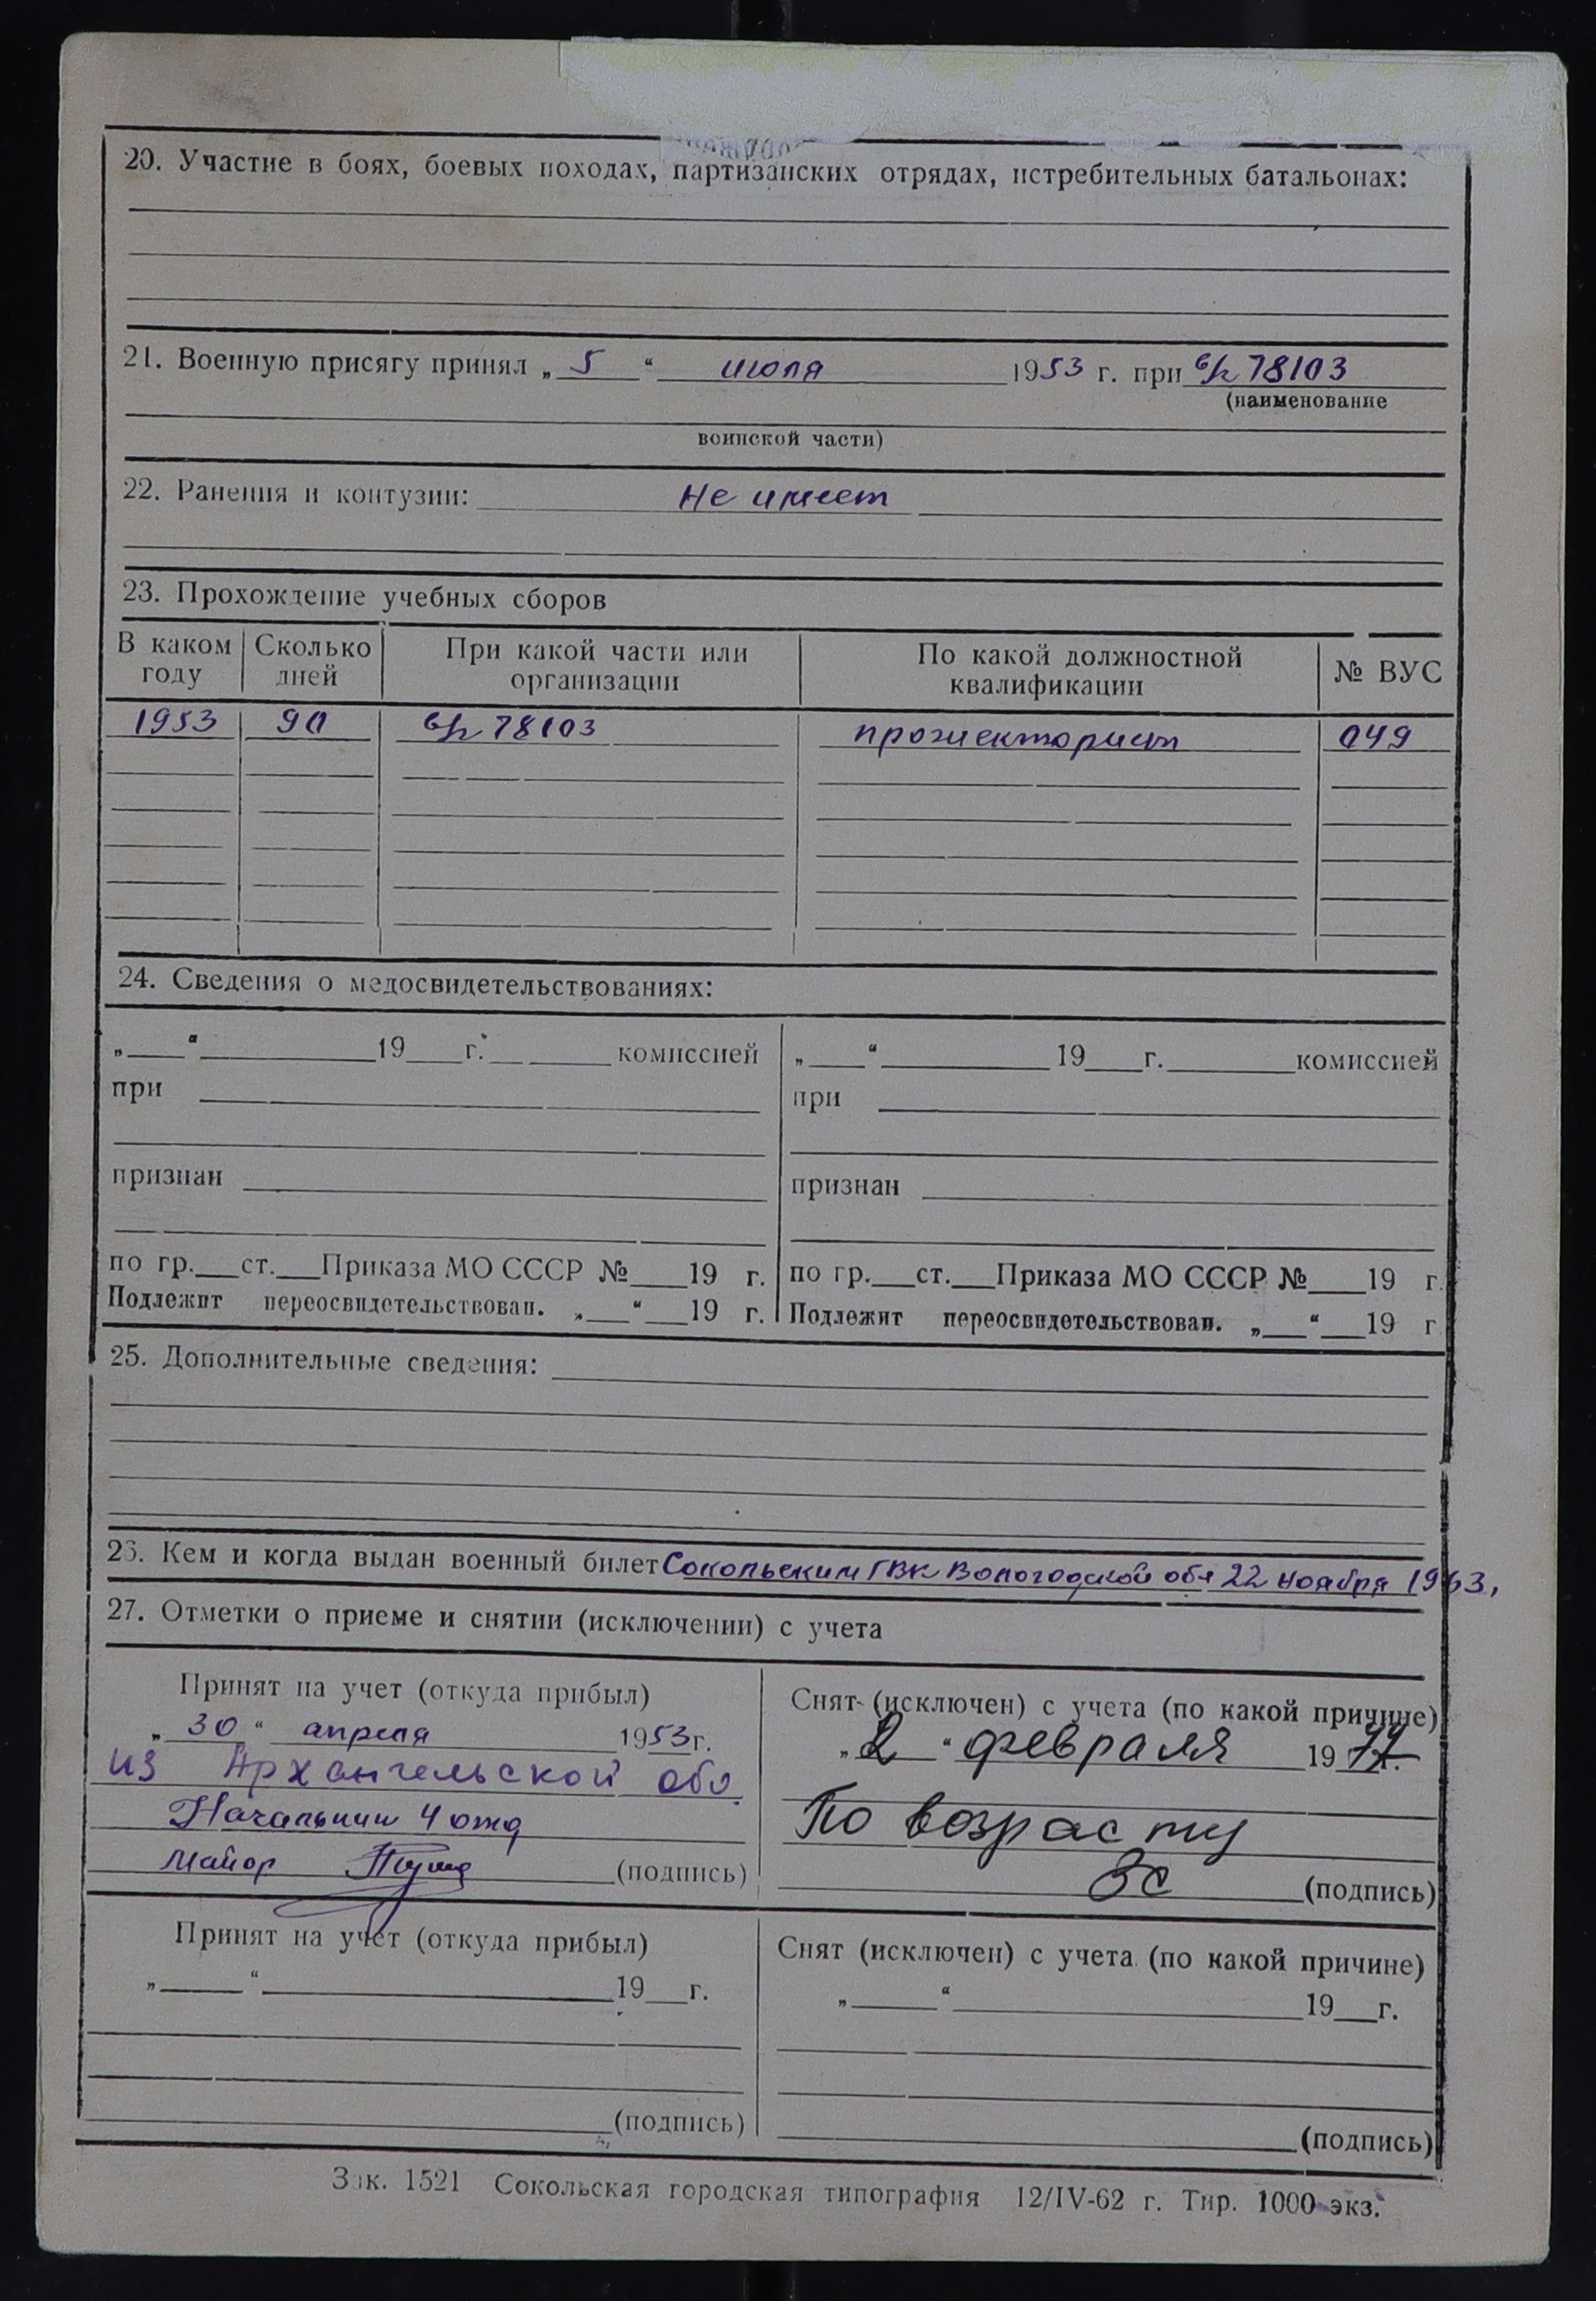 20. Участие в боях, боевых походах, партизанских отрядах, истребительных батальонах:
21. Военную присягу принял „ 5 “ июля 1953 г. при в/ч 78103
(наименование
воинской части)
22. Ранения и контузии: Не имеет
23. Прохождение учебных сборов
В каком году | Сколько дней | При какой части или организации | По какой должностной квалификации | № ВУС
1953 | 90 | в/ч 78103 | прожекторист | 049
24. Сведения о медосвидетельствованиях:
„___“ ______ 19__ г. ______ комиссией
при
признан
по гр.___ст.___Приказа МО СССР №___19 г.
Подлежит переосвидетельствован. „___“___19 г.
„___“ ______ 19__ г. ______ комиссией
при
признан
по гр.___ст.___Приказа МО СССР №___19 г.
Подлежит переосвидетельствован. „___“___19 г
25. Дополнительные сведения:
26. Кем и когда выдан военный билет Сокольским ГВК Вологодской обл 22 ноября 1963,
27. Отметки о приеме и снятии (исключении) с учета
Принят на учет (откуда прибыл)
„ 30 “ апреля 1953 г.
из Архангельской обл.
Начальник 4 отд
майор (подпись)
Снят (исключен) с учета (по какой причине)
„ 2 “ февраля 19 г.
По возрасту
(подпись)
Принят на учет (откуда прибыл)
„___“ ______ 19__г.
(подпись)
Снят (исключен) с учета (по какой причине)
„___“ ______ 19__г.
(подпись)
Зак. 1521 Сокольская городская типография 12/IV-62 г. Тир. 1000 экз.